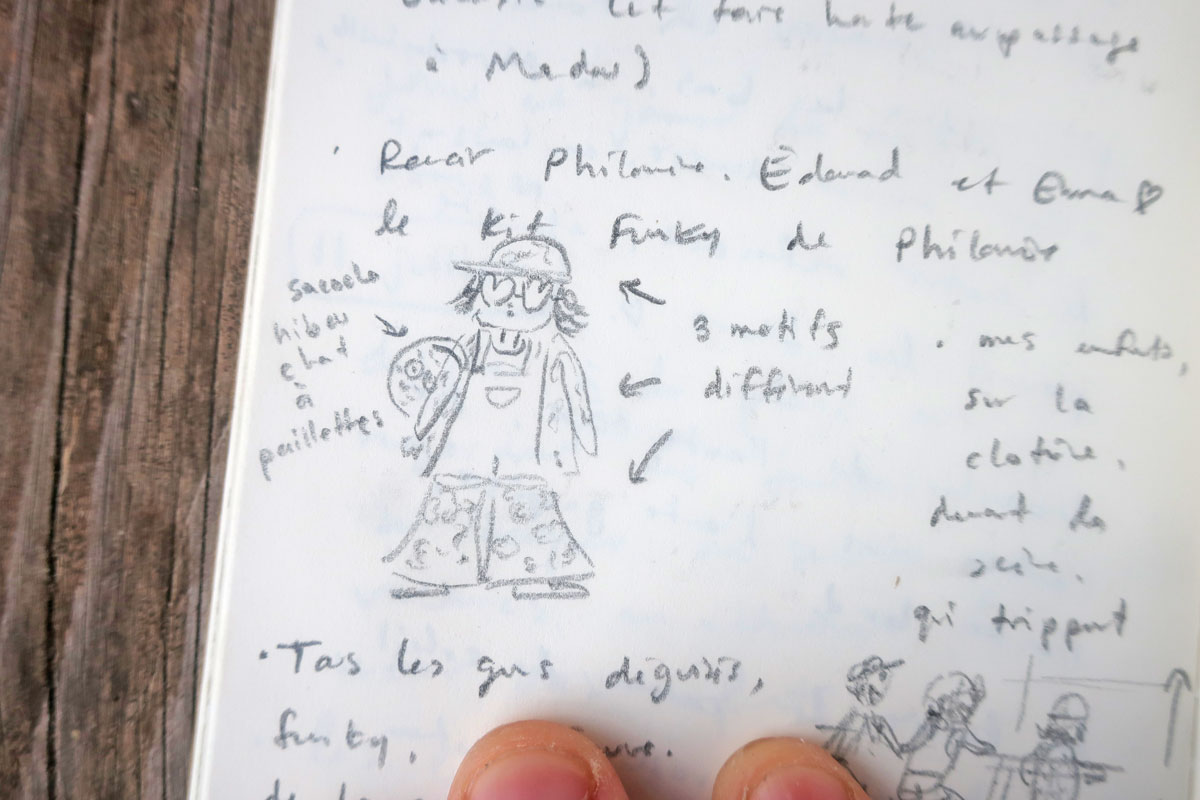 et faire halte au passage
à Medar)
· Revoir Philomène. Édouard et Emma
le Kit Funky de Philomène
sacoche
hibou
chat
à
paillettes
3 motifs
différent
· mes enfants,
sur la
clotûre,
devant la
scène.
qui trippent
· Tas les gens déguisés,
funky,